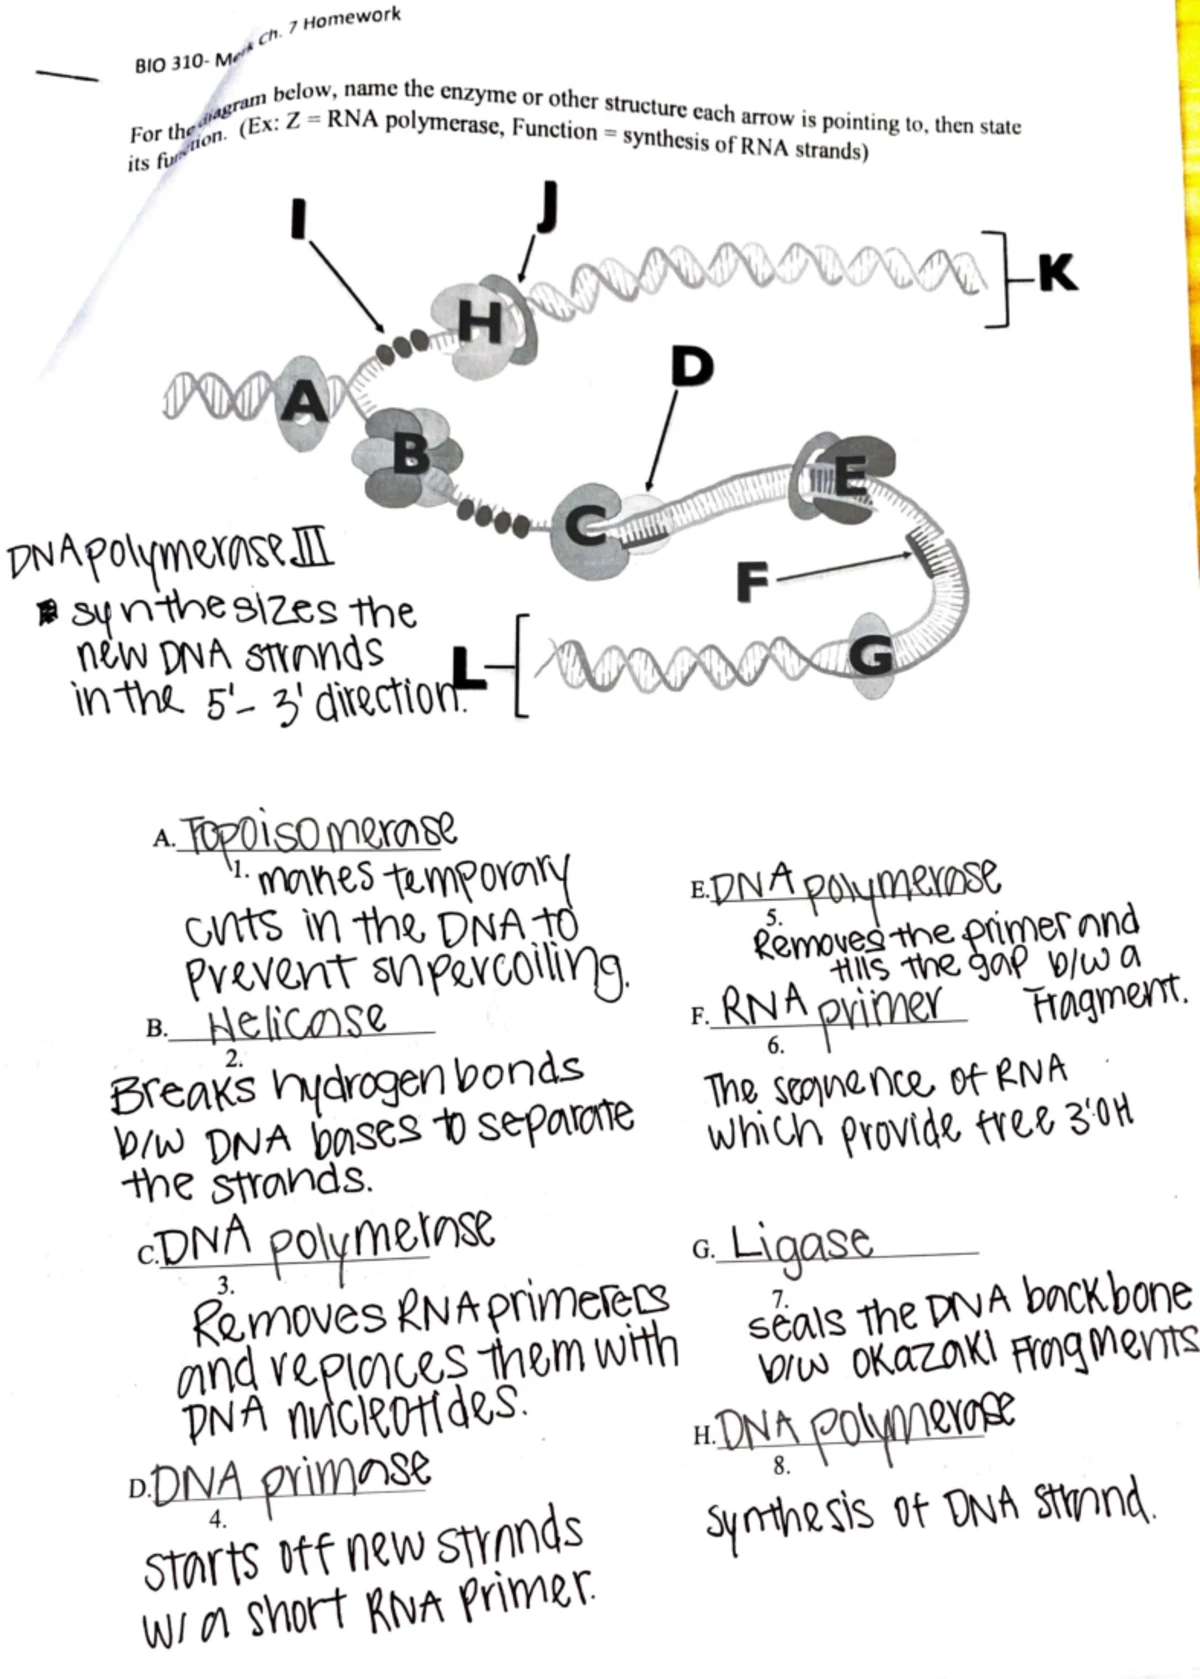 BIO 310- Mork Ch. 7 Homework
For the diagram below, name the enzyme or other structure each arrow is pointing to, then state
its function. (Ex: Z = RNA polymerase, Function = synthesis of RNA strands)
I
J
K
H
A
D
B
E
C
F
DNA polymerase III
synthesizes the
new DNA strands
in the 5'- 3' direction.
L
G
A. Topoisomerase
1. makes temporary
cuts in the DNA to
prevent supercoiling.
B. Helicase
2.
Breaks hydrogen bonds
b/w DNA bases to separate
the strands.
C. DNA polymerase
3.
Removes RNA primerers
and replaces them with
DNA nucleotides.
D. DNA primase
4.
starts off new strands
w/ a short RNA primer.
E. DNA polymerase
5.
Removes the primer and
fills the gap b/w a
Fragment.
F. RNA primer
6.
The sequence of RNA
which provide free 3'OH
G. Ligase
7.
seals the DNA backbone
b/w okazaki Fragments
H. DNA polymerase
8.
synthesis of DNA strand.